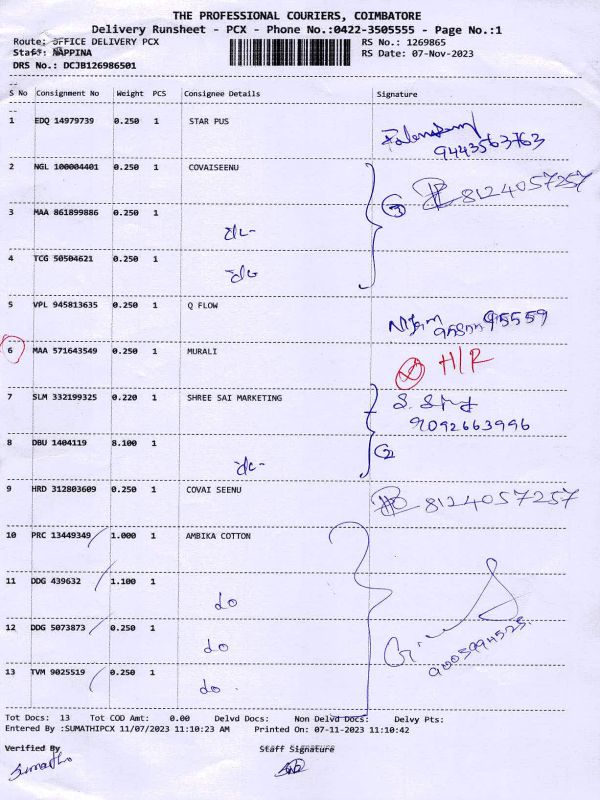 THE PROFESSIONAL COURIERS, COIMBATORE
Delivery Runsheet - PCX - Phone No.:0422-3505555 - Page No.:1
Route: OFFICE DELIVERY PCX RS No.: 1269865
Staff: NAPPINA RS Date: 07-Nov-2023
DRS No.: DCJB126986501
S No Consignment No Weight PCS Consignee Details Signature
1 EDQ 14979739 0.250 1 STAR PUS
9443563763
2 NGL 100004401 0.250 1 COVAISEENU
3 8124057257
3 MAA 861899886 0.250 1
4 TCG 50504621 0.250 1
5 VPL 945813635 0.250 1 Q FLOW
6 MAA 571643549 0.250 1 MURALI H/R
7 SLM 332199325 0.220 1 SHREE SAI MARKETING
9092663996
8 DBU 1404119 8.100 1 2
9 HRD 312803609 0.250 1 COVAI SEENU 8124057257
10 PRC 13449349 1.000 1 AMBIKA COTTON
11 DDG 439632 1.100 1 do
12 DDG 5073873 0.250 1 do
13 TVM 9025519 0.250 1 do
Tot Docs: 13 Tot COD Amt: 0.00 Delvd Docs: Non Delvd Docs: Delvy Pts:
Entered By :SUMATHIPCX 11/07/2023 11:10:23 AM Printed On: 07-11-2023 11:10:42
Verified By Staff Signature